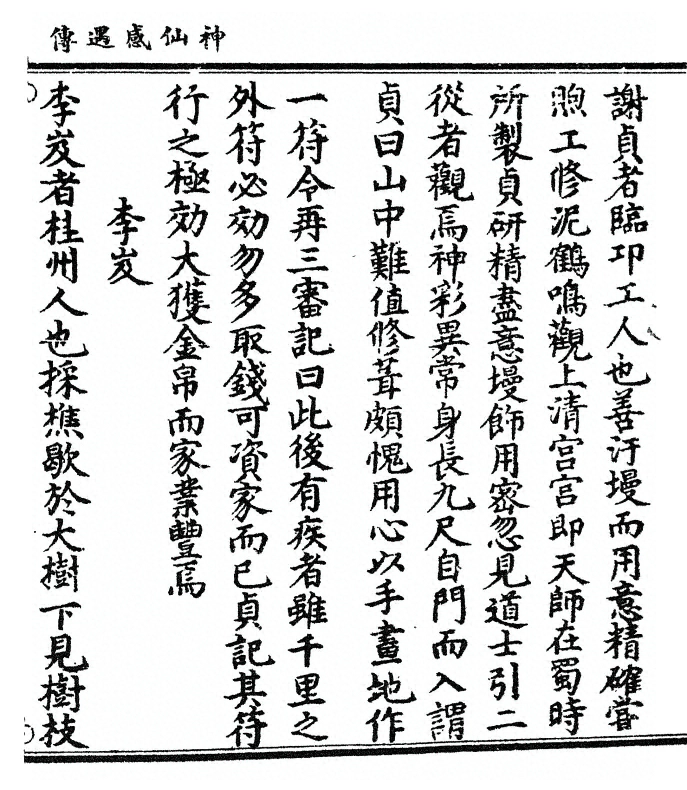 神仙感遇傳
謝貞者臨邛工人也善汙墁而用意精確嘗
煦工修泥鶴鳴觀上清宮宮即天師在蜀時
所製貞研精盡意墁飾用密忽見道士引二
從者觀焉神彩異常身長九尺自門而入謂
貞曰山中難值修葺頗愧用心以手畫地作
一符令再三審記曰此後有疾者雖千里之
外符必効勿多取錢可資家而已貞記其符
行之極効大獲金帛而家業豐焉
李岌
李岌者桂州人也採樵歇於大樹下見樹枝